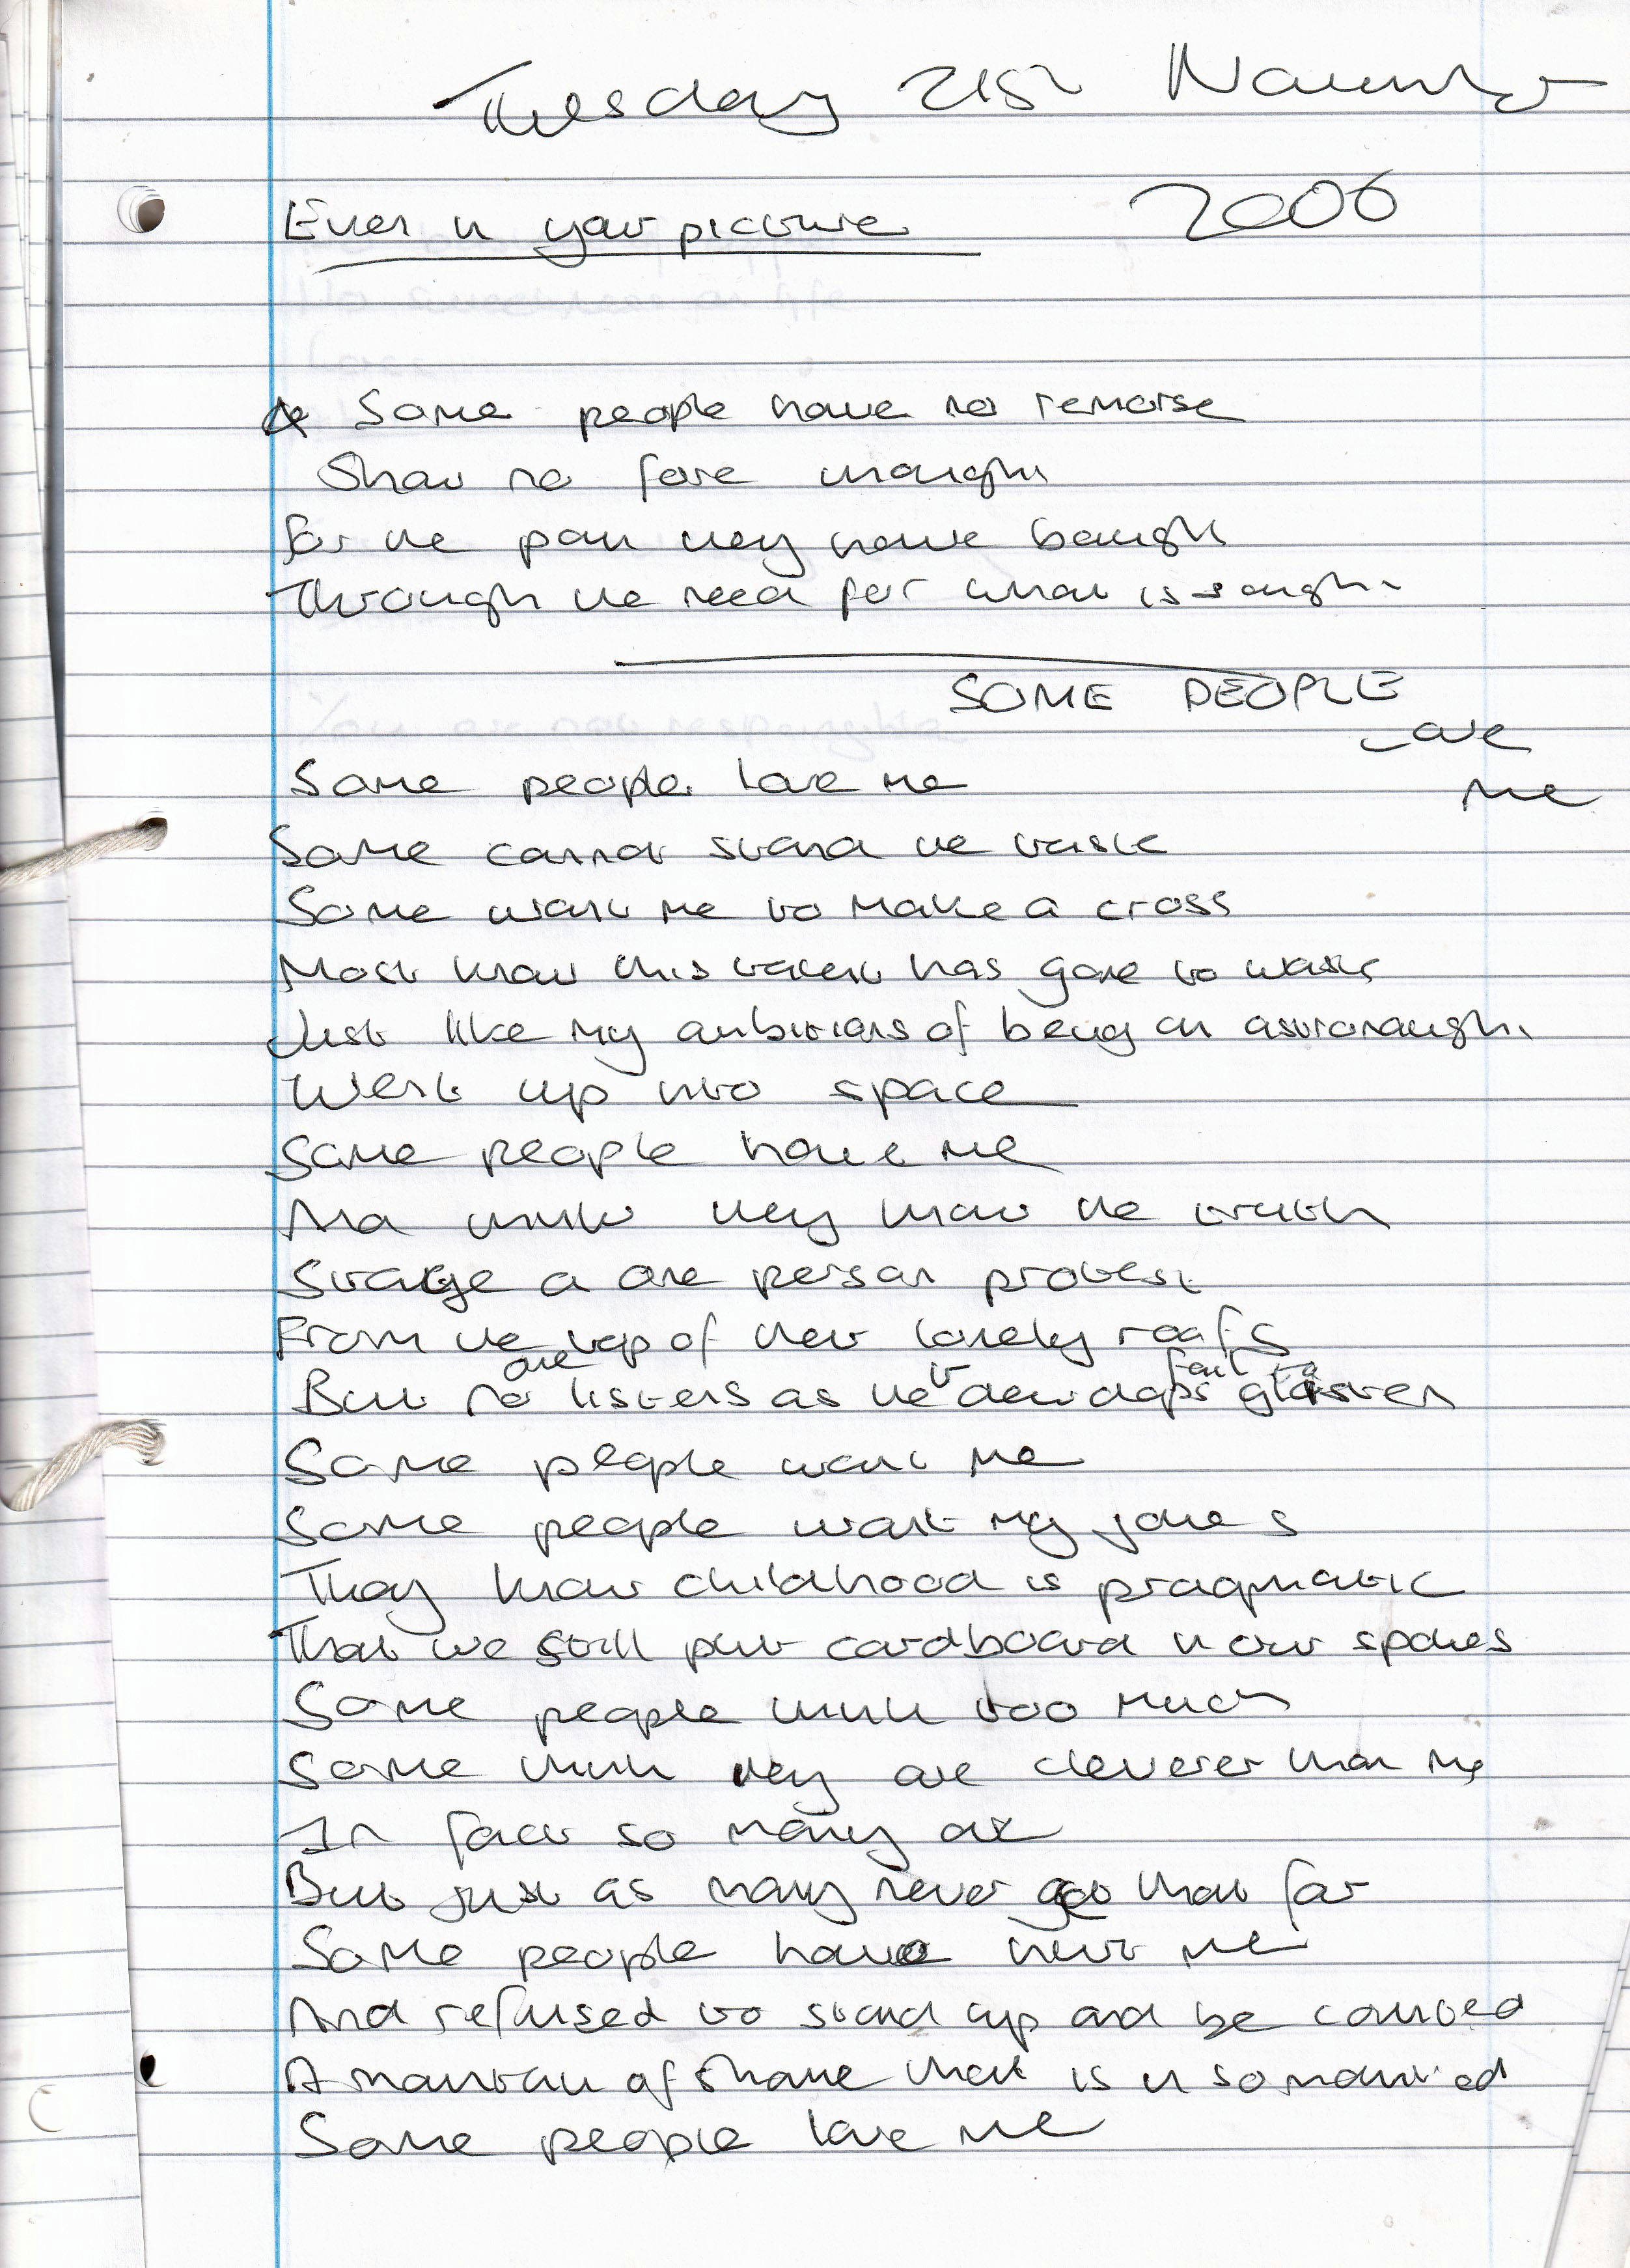 Tuesday 21st November
2006
Even in your picture
Some people have no remorse
Show no fore thought
for the pain they have bought
Through the need for what is sought
SOME PEOPLE
are
me
Some people love me
Some cannot stand the taste
Some want me to make a cross
Most know this talent has gone to waste
Just like my ambitions of being an astronaught
Went up into space
Some people hate me
And think they know the truth
Stage a one person protest
From the top of their lonely roofs
But no one listens as the dew drops fail to glisten
Some people want me
Some people want my jokes
They know childhood is pragmatic
That we still put cardboard in our spokes
Some people think too much
Some think they are cleverer than me
In fact so many are
But just as many never got that far
Some people have hurt me
And refused to stand up and be counted
A mountain of shame that is
Some people love me